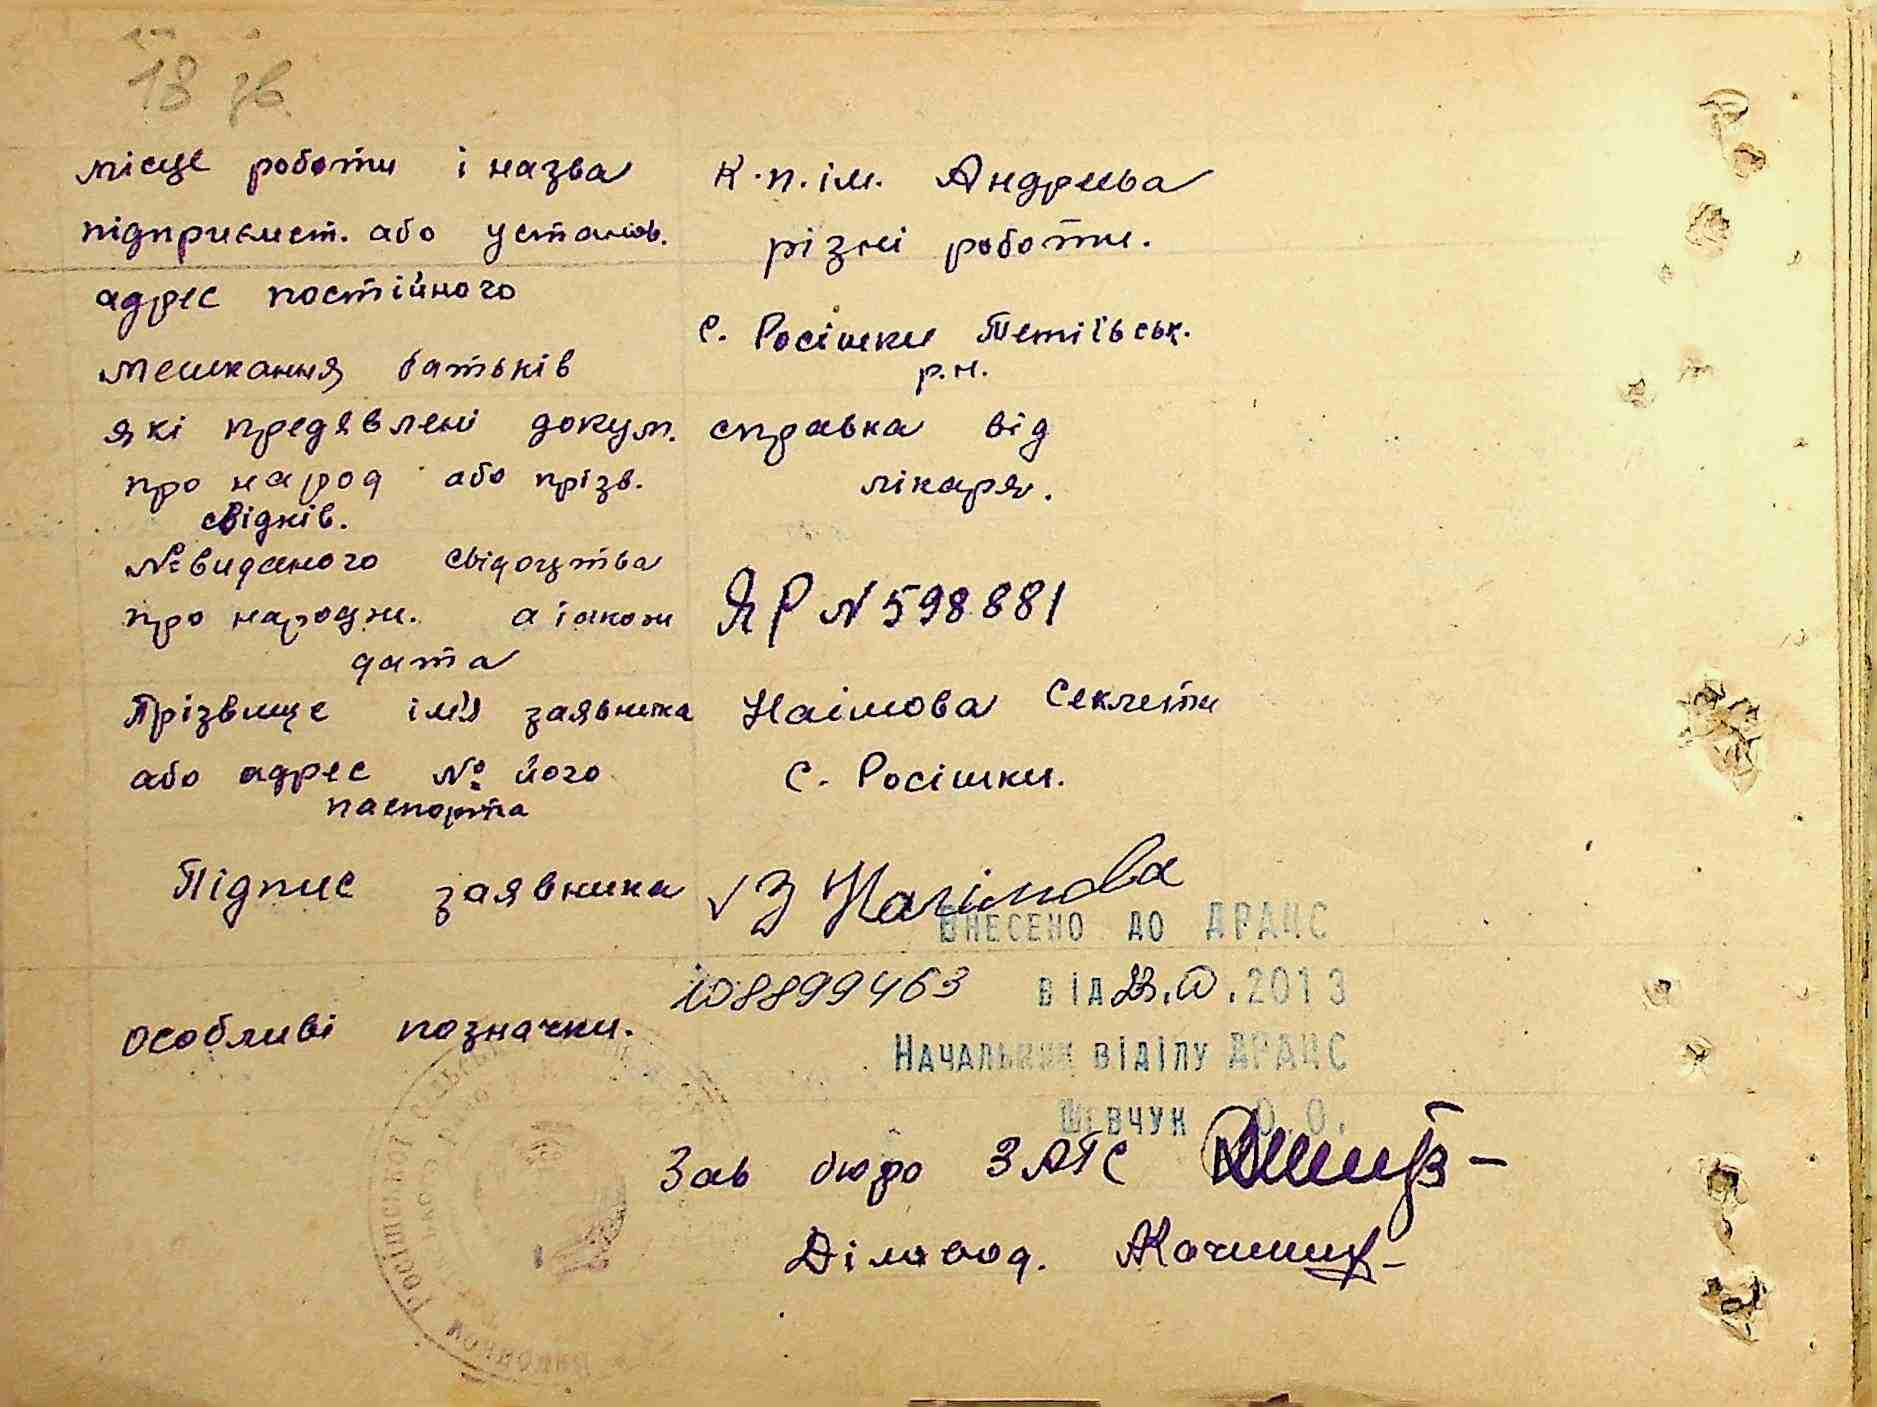 13 зв.
місце роботи і назва К.п.ім. Андреєва
підприємст. або установ. різні роботи.
адрес постійного
мешкання батьків с. Росішки Тетіївськ.
р.н.
які предявлені докум. справка від
про народ або прізв. лікаря.
свідків.
№ виданого свідоцтва
про народжн. а також ЯР N 598881
дата
Прізвище ім'я заявника Наімова Секлети
або адрес № його с. Росішки.
паспорта
Підпис заявника √ З Нагімова
ВНЕСЕНО ДО ДРАЦС
108899463 від 23. .2013
особливі позначки.
Начальник відділу ДРАЦС
Шевчук О.О.
Зав бюро ЗАГС
Діловод.
Росішської сільської